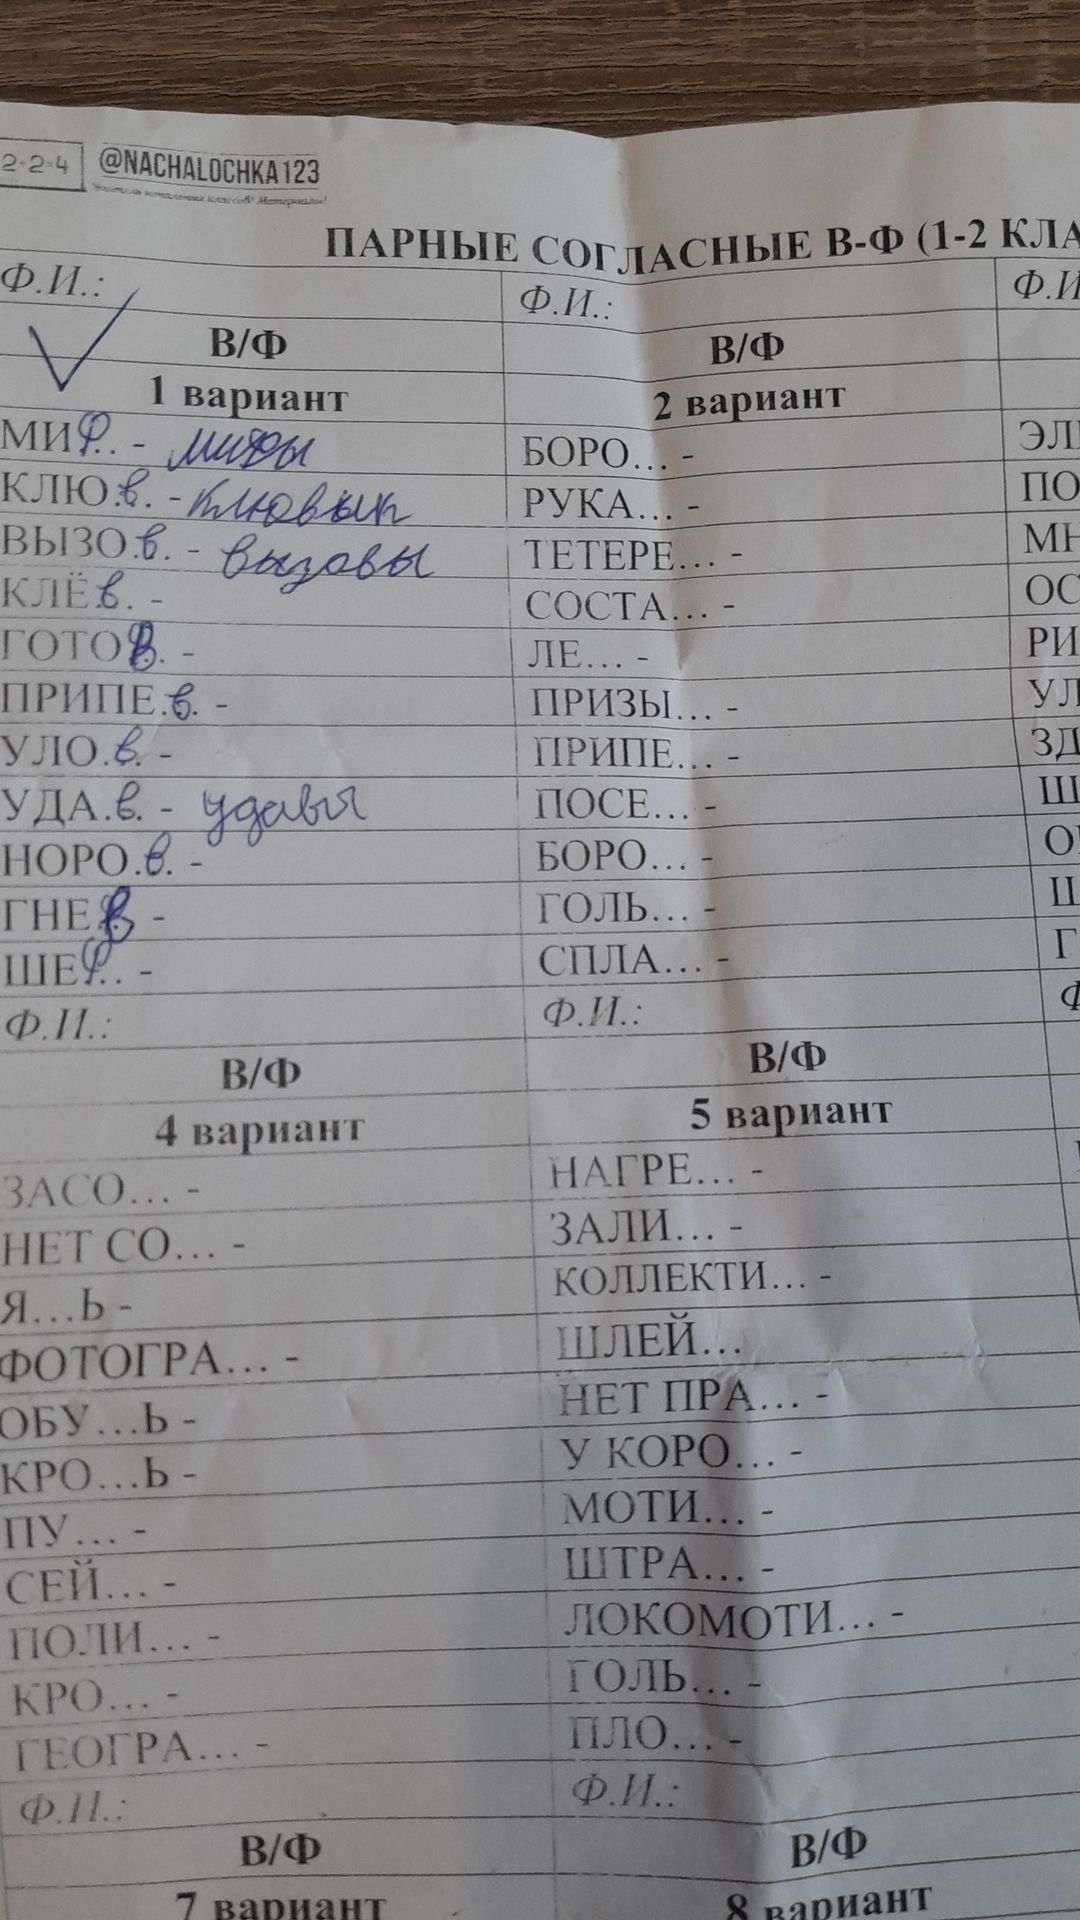 2-2=4 @NACHALOCHKA123
ПАРНЫЕ СОГЛАСНЫЕ В-Ф (1-2 КЛА
Ф.И.: Ф.И.: Ф.И
В/Ф В/Ф
1 вариант 2 вариант
МИф.. - мифы БОРО... - ЭЛ
КЛЮ.в. - РУКА... - ПО
ВЫЗО.в. - вызовы ТЕТЕРЕ... -
КЛЁв. - СОСТА... - ОС
ГОТОв. - ЛЕ... - РИ
ПРИПЕ.в. - ПРИЗЫ... - УЛ
УЛО.в. - ПРИПЕ... - ЗД
УДА.в. - удавы ПОСЕ... - Ш
НОРО.в. - БОРО... -
ГНЕ.в - ГОЛЬ... -
ШЕф.. - СПЛА... - Г
Ф.И.: Ф.И.: Ф
В/Ф В/Ф
4 вариант 5 вариант
ЗАСО... - НАГРЕ... -
НЕТ СО... - ЗАЛИ... -
Я...Ь - КОЛЛЕКТИ... -
ФОТОГРА... - ШЛЕЙ...
ОБУ...Ь - НЕТ ПРА... -
КРО...Ь - У КОРО... -
ПУ... - МОТИ... -
СЕЙ... - ШТРА... -
ПОЛИ... - ЛОКОМОТИ... -
КРО... - ГОЛЬ... -
ГЕОГРА... - ПЛО... -
Ф.И.: Ф.И.:
В/Ф В/Ф
7 вариант 8 вариант